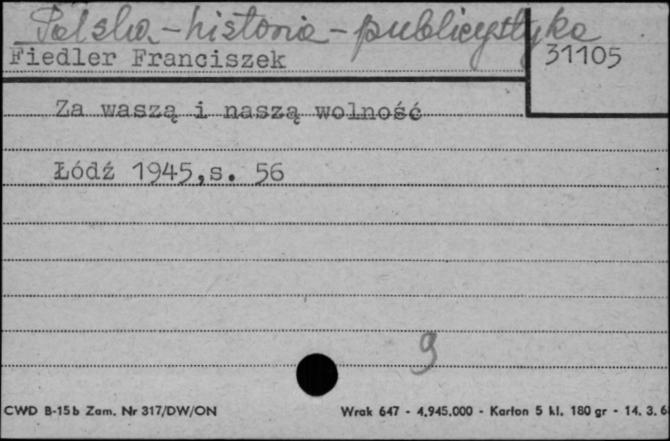 Polska - historia - publicystyka
Fiedler Franciszek
31105
Za waszą i naszą wolność
Łódź 1945,s. 56
9
CWD B-15b Zam. Nr 317/DW/ON
Wrak 647 - 4.945.000 - Karton 5 kl. 180 gr - 14. 3. 6